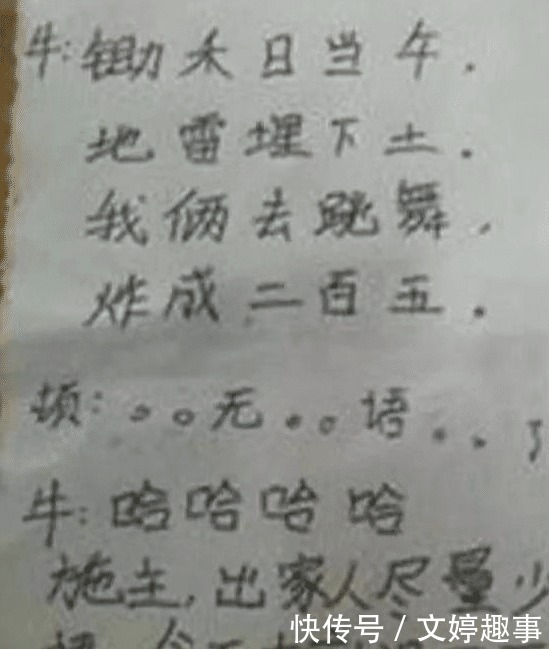 牛:锄禾日当午.
地雷埋下土.
我俩去跳舞,
炸成二百五.
顿:。。无。。语...了
牛:哈哈哈哈
施主,出家人尽量少
快传号/文婷趣事